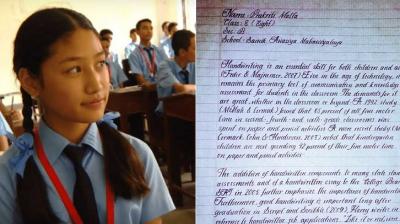 Name : Prakriti Malla
Class : 8 (Eight)
Sec : B
School : Sainik Awasiya Mahavidyalaya
Handwriting is an essential skill for both children and ad
(Feder & Majnemer, 2007) Even in the age of technology, it
remains the primary tool of communication and knowledge
assessment for students in the classroom. The demands for it
are great, whether in the classroom or beyond. A 1992 study
(McHale & Cermak) found that 85 percent of all fine motor
time in second-, fourth- and sixth-grade classrooms was
spent on paper and pencil activities. A more recent study (
Cermak, & Henderson, 2003) noted that kindergarten
children are now spending 42 percent of their fine motor time
on paper and pencil activities.
The addition of handwritten components to many state stand
assessments and of a handwritten essay to the College Board
SAT in 2005 further emphasize the importance of handwriting
Furthermore, good handwriting is important long after
graduation